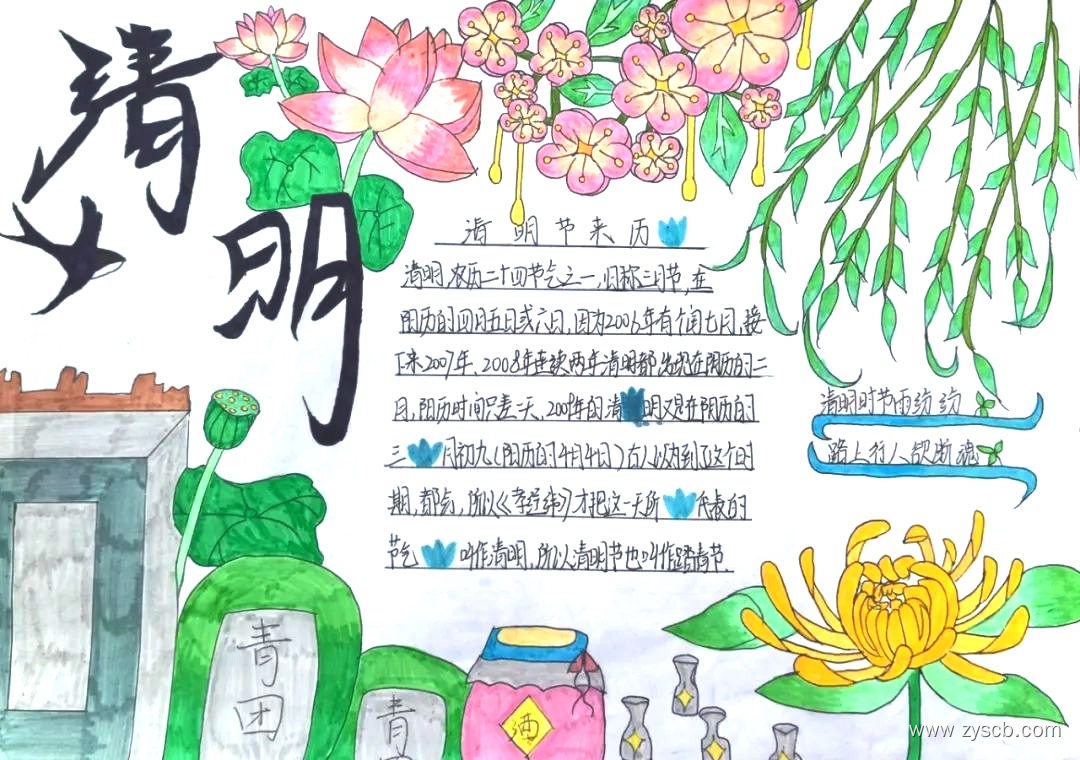 清
明
清明节来历
清明,农历二十四节气之一,旧称三月节,在
阳历的四月五日或六日,因为2006年有个闰七月,接
下来2007年、2008年连续两年清明都出现在阴历的二
月,阳历时间只差一天、2009年的清明又是在阴历的
三月初九(阳历的4月4日)古人以为到了这个时
期,都会,所以《孝经纬》才把这一天所代表的
节气叫作清明,所以清明节也叫作踏青节
清明时节雨纷纷
路上行人欲断魂
青团
青
酒
www.zyscb.com